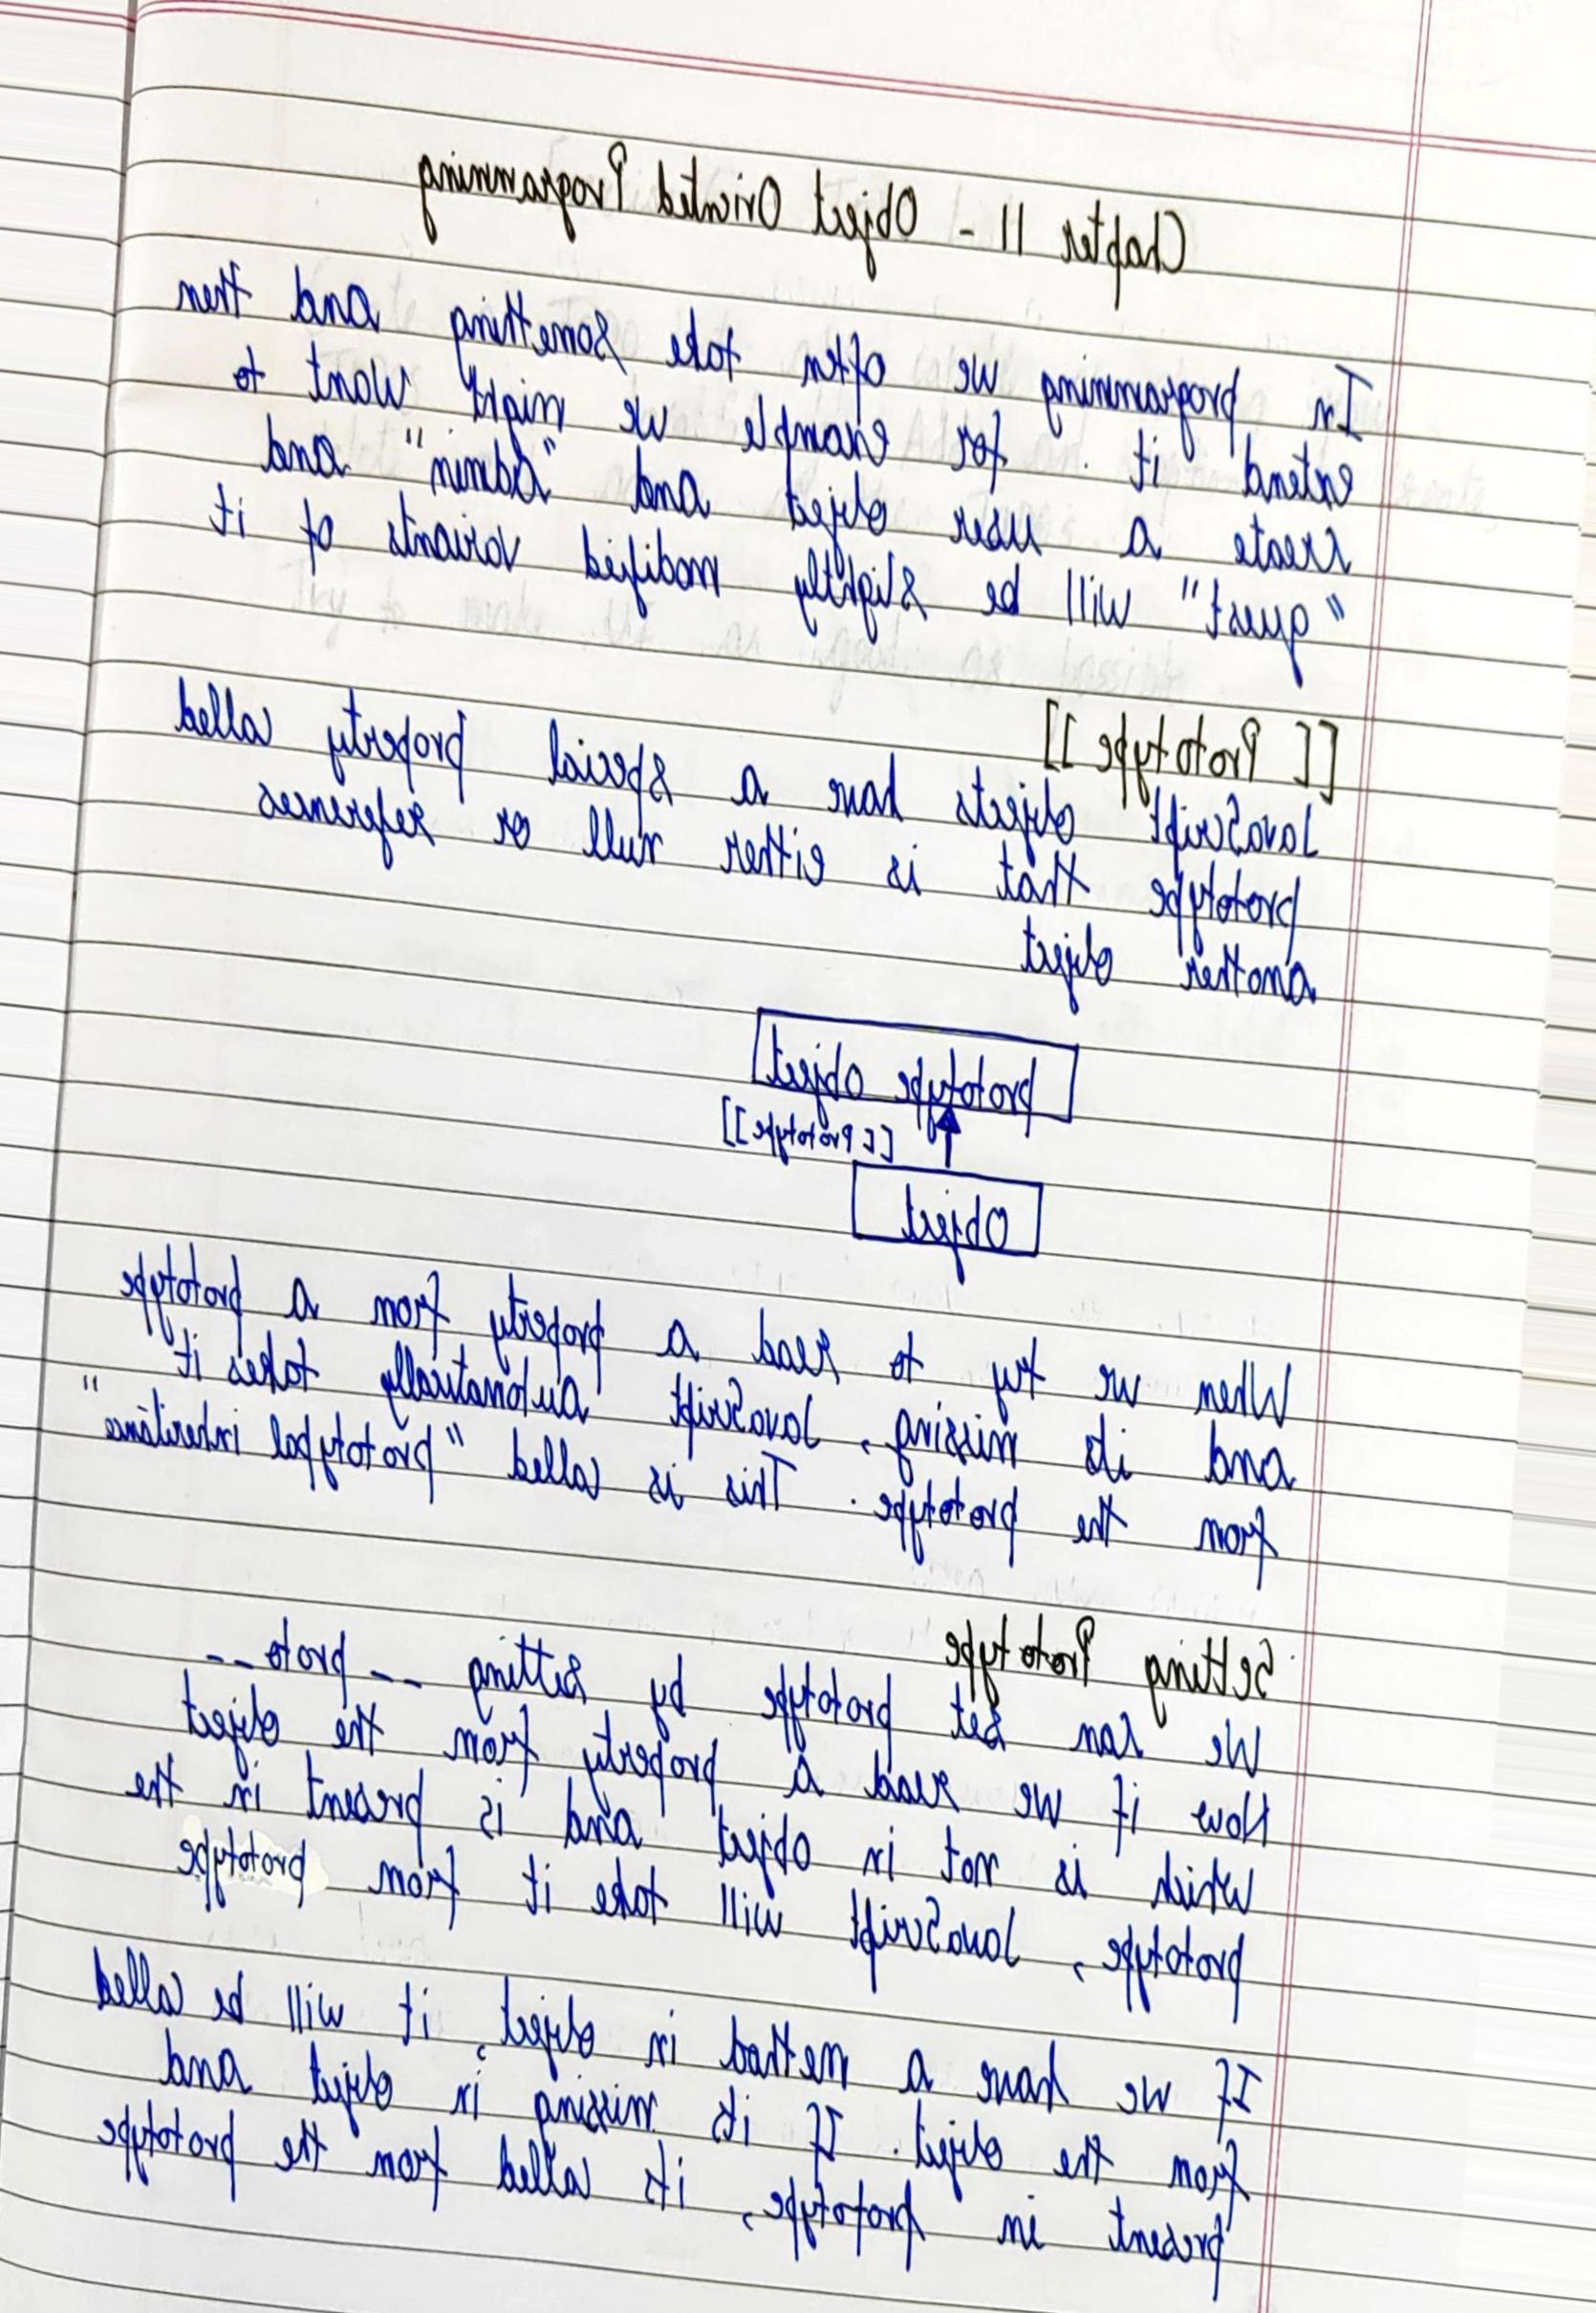 Chapter 11 - Object Oriented Programming
In programming we often take something and then
extend it. for example we might want to
create a user object and "admin" and
"guest" will be slightly modified variants of it
[[Prototype]]
JavaScript objects have a special property called
prototype that is either null or references
another object
prototype object
[[Prototype]]
Object
When we try to read a property from a prototype
and its missing, JavaScript automatically takes it
from the prototype. This is called "prototypal inheritance"
Setting Prototype
We can set prototype by setting __proto__
Now if we read a property from the object
which is not in object and is present in the
prototype, JavaScript will take it from prototype
If we have a method in object, it will be called
from the object. If its missing in object and
present in prototype, its called from the prototype